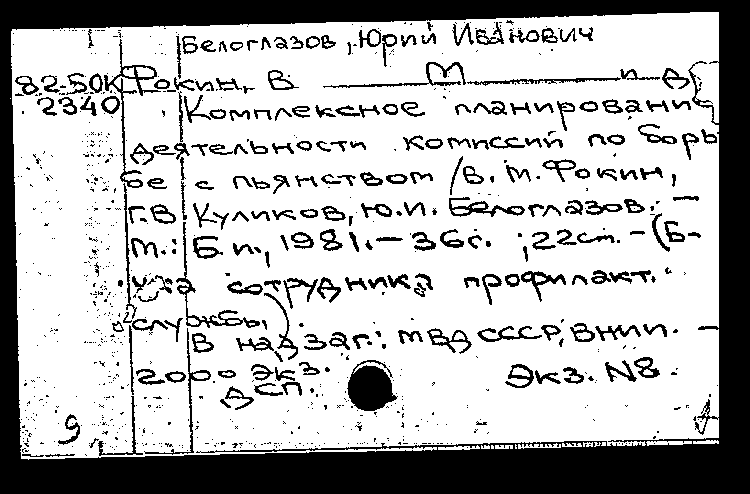 Белоглазов, Юрий Иванович
82-50К Фокин, В М и д
2340 Комплексное планирование
деятельности комиссий по борь
бе с пьянством / В. М. Фокин,
Г.В. Куликов, Ю.И. Белоглазов. —
М.: Б.и., 1981. — 36с. ; 22см. — (Б-
ка сотрудника профилакт.
службы)
В надзаг.: МВД СССР, ВНИИ. —
2000 экз. Экз. N8.
ДСП.
9